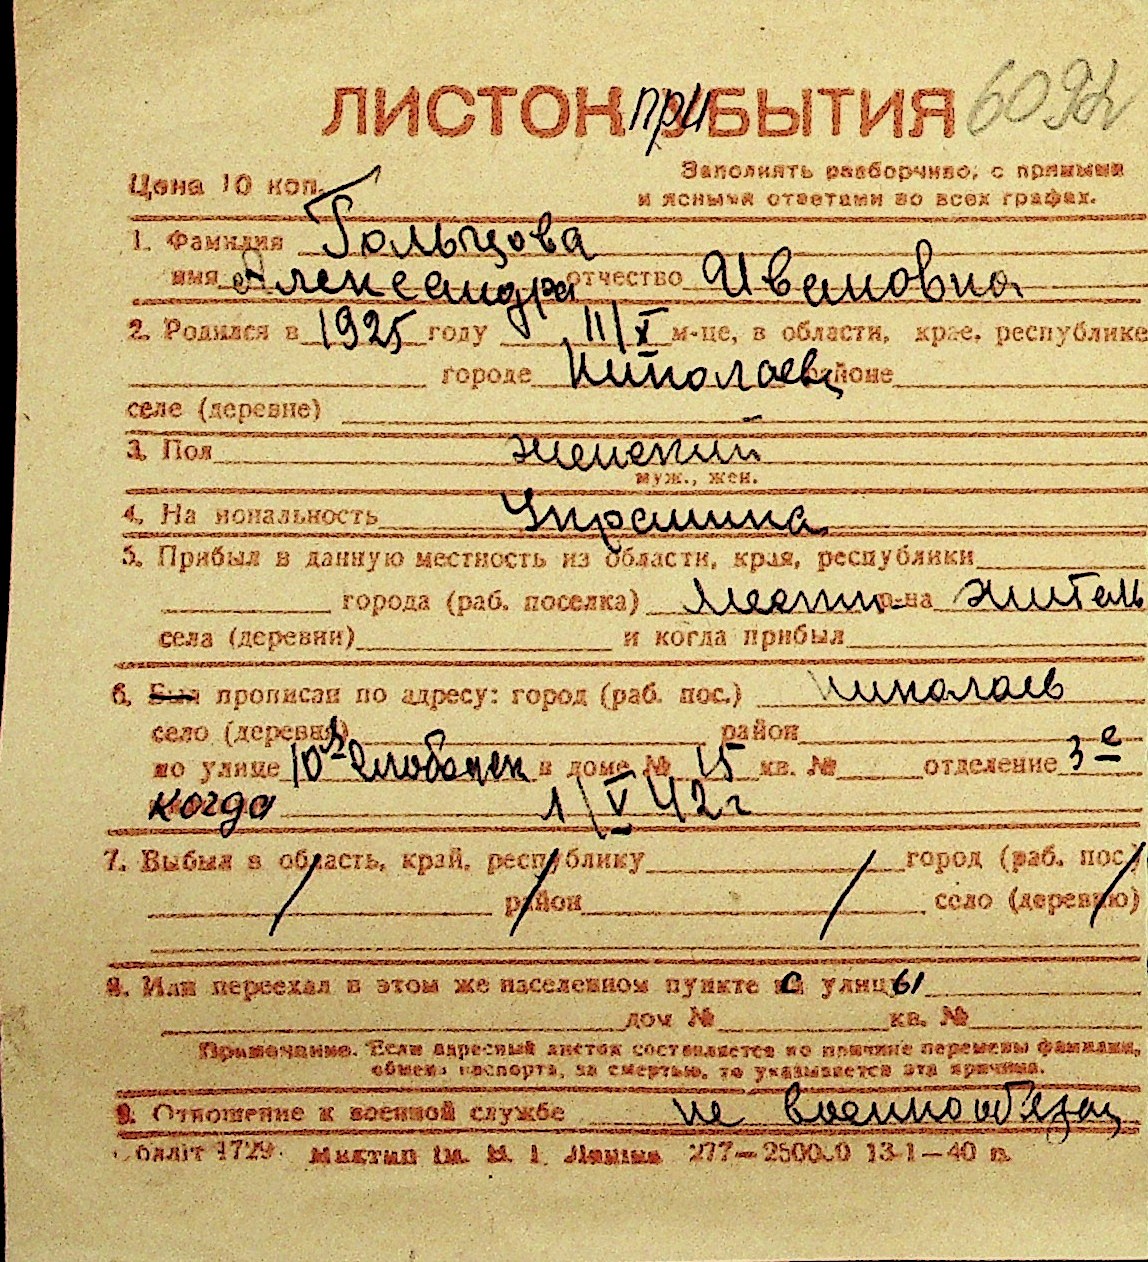 ЛИСТОК при БЫТИЯ
Цена 10 коп.
Заполнять разборчиво, с прямыми
и ясными ответами во всех графах.
1. Фамилия Гольцова
имя Александра отчество Ивановна
2. Родился в 1925 году 11/X м-це, в области, крае, республике
городе Николаев районе
селе (деревне)
3. Пол женский
муж., жен.
4. На иональность Украинка
5. Прибыл в данную местность из области, края, республики
города (раб. поселка) Местн р-на житель
села (деревни) и когда прибыл
6. Был прописан по адресу: город (раб. пос.) Николаев
село (деревня) район
по улице 10 Слободск в доме № 15 кв. № отделение 3-е
когда 1/V 42 г
7. Выбыл в область, край, республику город (раб. пос.)
район село (деревню)
8. Или переехал в этом же населенном пункте с улицы
дом № кв. №
Примечание. Если адресный листок составляется по причине перемены фамилии,
обмена паспорта, за смертью, то указывается эта причина.
9. Отношение к военной службе не военнообязан
облліт 1729. Миктип ім. В. І. Леніна 277—2500.0 13-1—40 п.